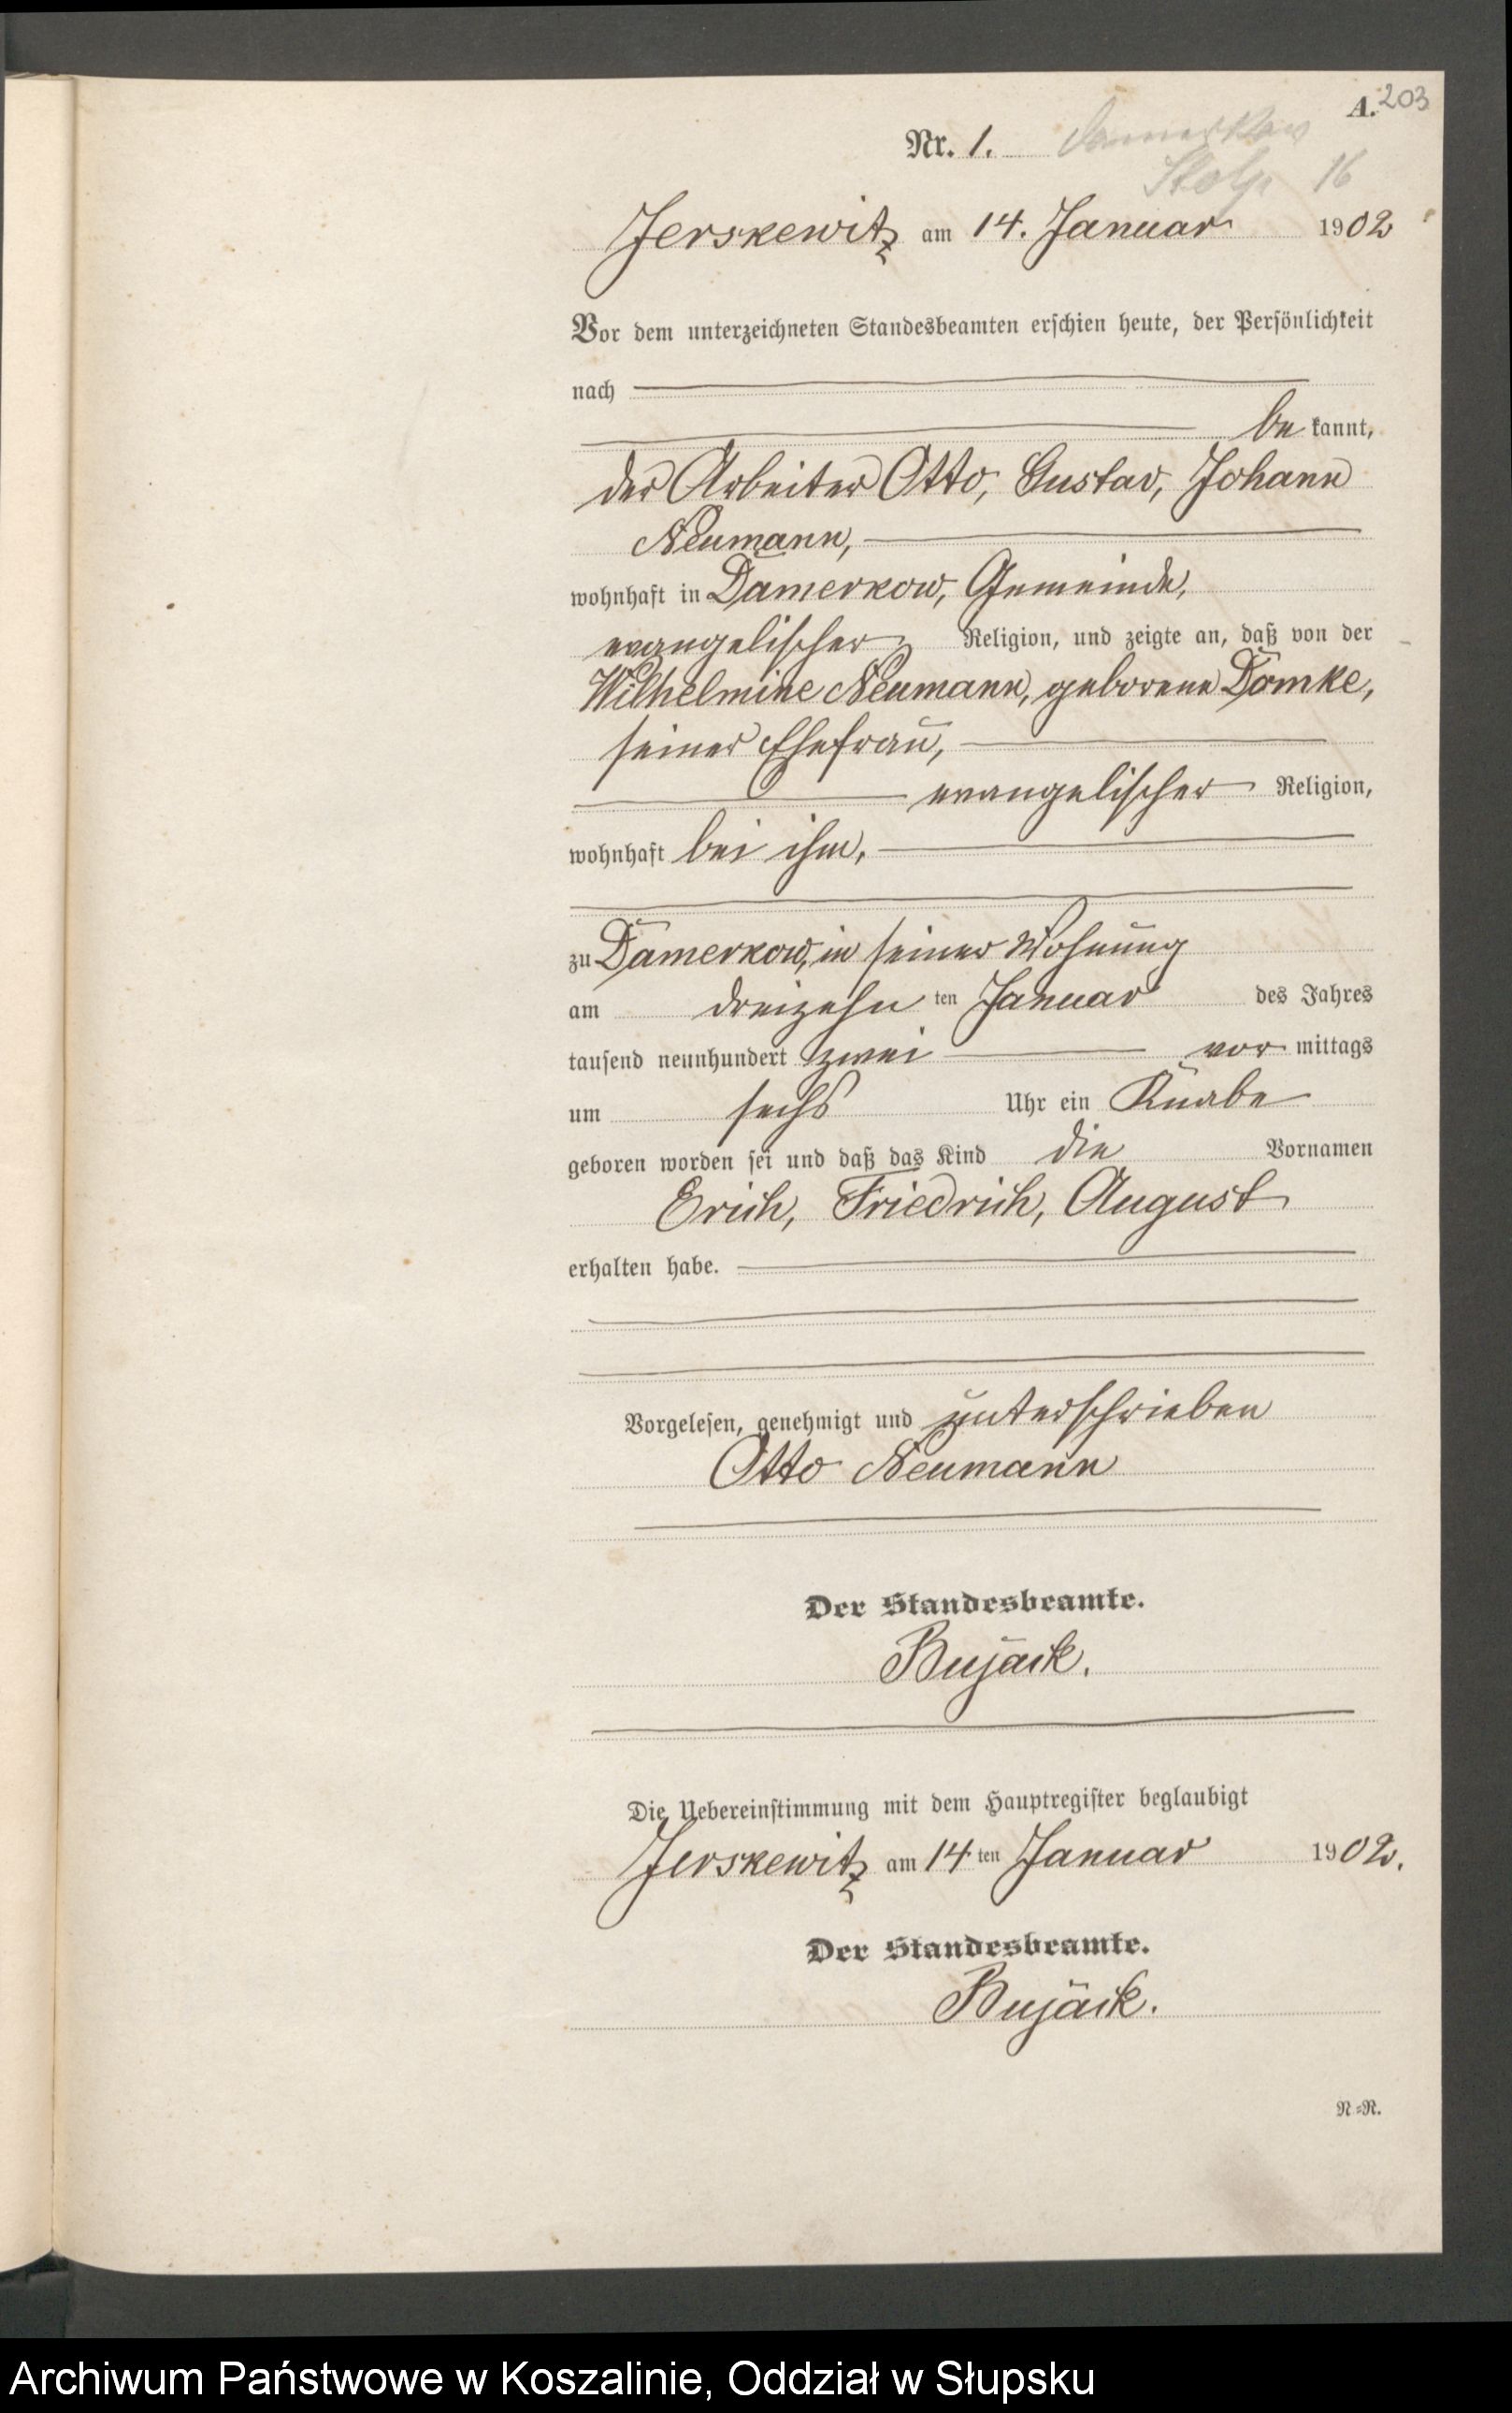 A. 203
Nr. 1. Damerkow
Stolp 16
Jerskewitz am 14. Januar 1902
Vor dem unterzeichneten Standesbeamten erschien heute, der Persönlichkeit
nach
be kannt,
der Arbeiter Otto, Gustav, Johann
Neumann,
wohnhaft in Damerkow, Gemeinde,
evangelischer Religion, und zeigte an, daß von der
Wilhelmine Neumann, geborene Domke,
seiner Ehefrau,
evangelischer Religion,
wohnhaft bei ihm,
zu Damerkow, in seiner Wohnung
am dreizehn ten Januar des Jahres
tausend neunhundert zwei vor mittags
um sechs Uhr ein Knabe
geboren worden sei und daß das Kind die Vornamen
Erich, Friedrich, August
erhalten habe.
Vorgelesen, genehmigt und unterschrieben
Otto Neumann
Der Standesbeamte.
Bujack.
Die Uebereinstimmung mit dem Hauptregister beglaubigt
Jerskewitz am 14 ten Januar 1902.
Der Standesbeamte.
Bujack.
N=R.
Archiwum Państwowe w Koszalinie, Oddział w Słupsku